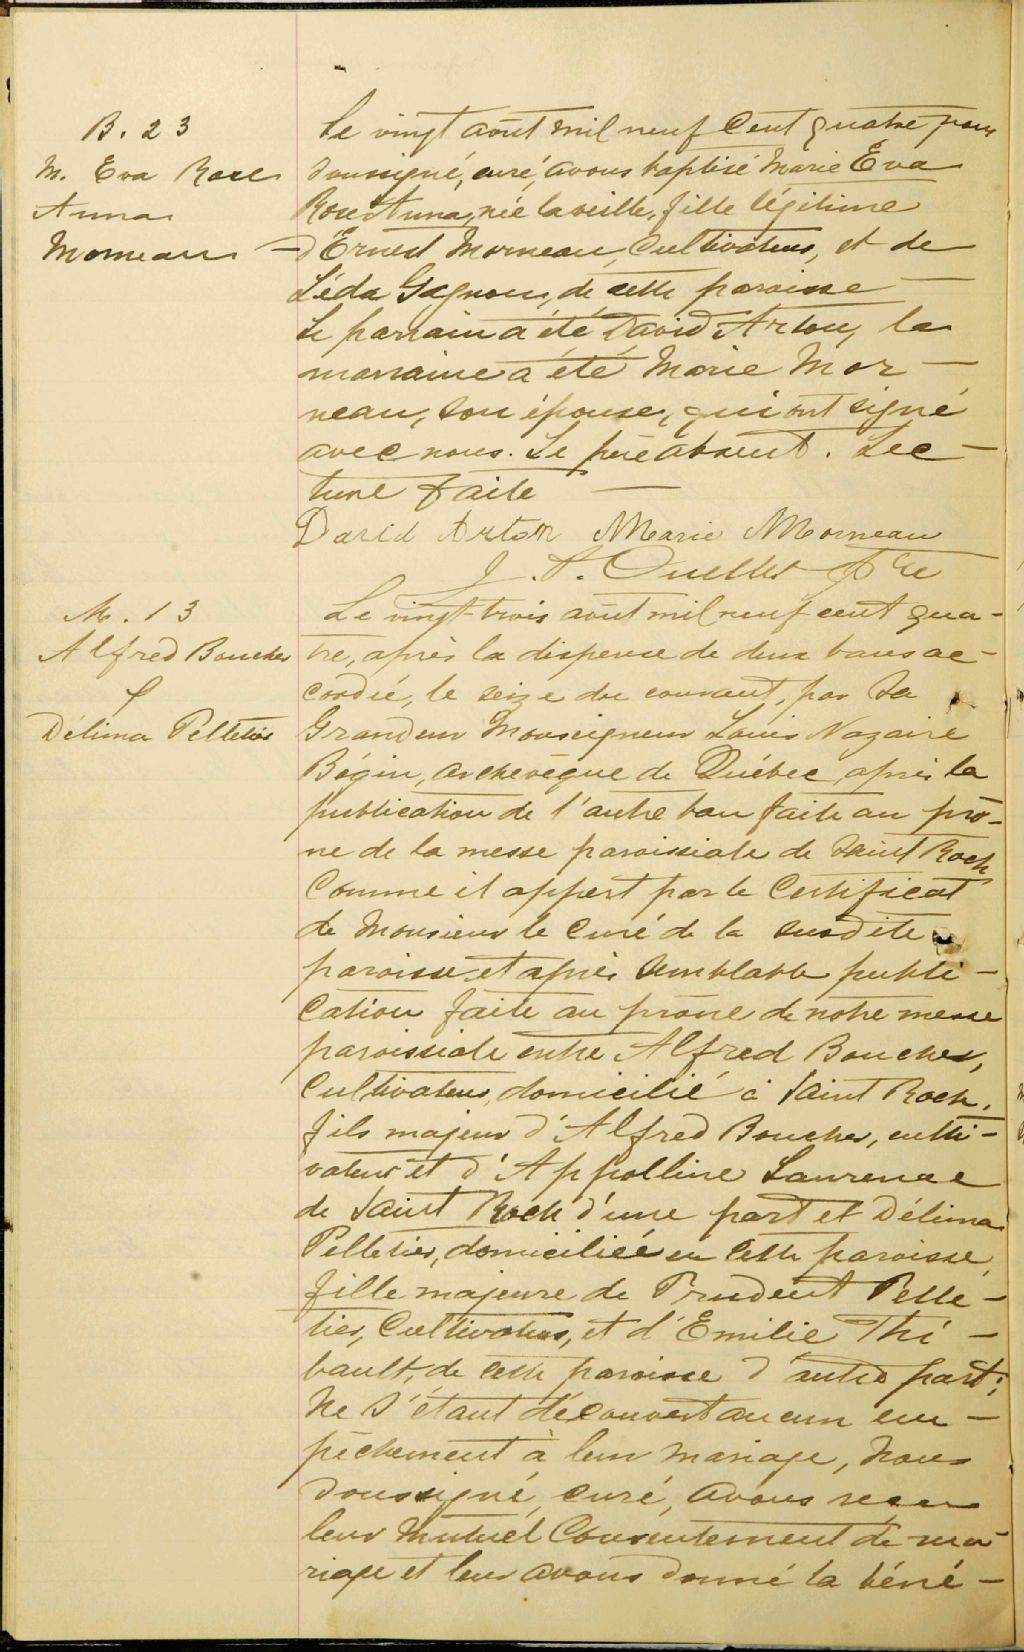 B. 23
M. Eva Rose
Anna
Morneau
Le vingt août mil neuf cent quatre nous
soussigné, curé, avons baptisé Marie Eva
Rose Anna, née la veille, fille légitime
d'Ernest Morneau, cultivateur, et de
Léda Gagnon, de cette paroisse
Le parrain a été David Arton, la
marraine a été Marie Mor-
neau, son épouse, qui ont signé
avec nous. Le père absent. Lec-
ture faite
David Arton Marie Morneau
J. Ouellet Ptre
M. 13
Alfred Boucher
&
Délima Pelletier
Le vingt-trois août mil neuf cent qua-
tre, après la dispense de deux bans ac-
cordée, le seize du courant, par Sa
Grandeur Monseigneur Louis Nazaire
Bégin, archevêque de Québec, après la
publication de l'autre ban faite au prô-
ne de la messe paroissiale de Saint Roch
comme il appert par le certificat
de Monsieur le curé de la susdite
paroisse et après semblable publi-
cation faite au prône de notre messe
paroissiale entre Alfred Boucher,
cultivateur, domicilié à Saint Roch,
fils majeur d'Alfred Boucher, culti-
vateur et d'Appolline Laurence
de Saint Roch d'une part et Délima
Pelletier, domiciliée en cette paroisse,
fille majeure de Prudent Pelle-
tier, cultivateur, et d'Emilie Thi-
bault, de cette paroisse d'autre part;
Ne s'étant découvert aucun em-
pêchement à leur mariage, nous
soussigné, curé, avons reçu
leur mutuel consentement de ma-
riage et leur avons donné la béné-